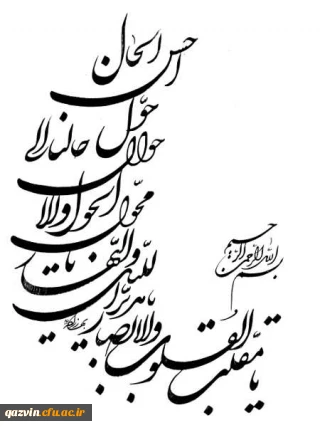 بسم الله الرحمن الرحیم
یا مقلب القلوب والابصار
یا مدبر اللیل والنهار
یا محول الحول والاحوال
حول حالنا الی
احسن الحال
qazvin.cfu.ac.ir